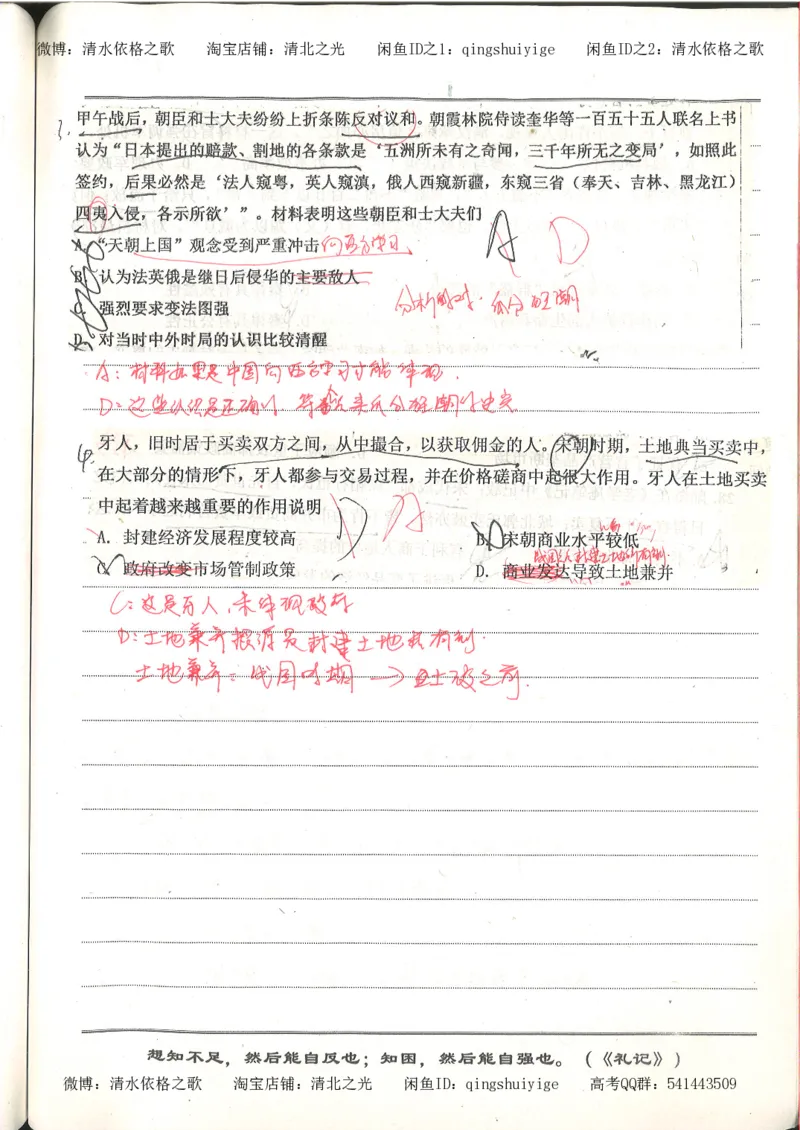 微博：清水依格之歌 淘宝店铺：清北之光 闲鱼ID之1：qingshuiyige 闲鱼ID之2：清水依格之歌
3. 甲午战后，朝臣和士大夫纷纷上折条陈反对议和。朝霞林院侍读奎华等一百五十五人联名上书
认为“日本提出的赔款、割地的各条款是‘五洲所未有之奇闻，三千年所无之变局’，如照此
签约，后果必然是‘法人窥粤，英人窥滇，俄人西窥新疆，东窥三省（奉天、吉林、黑龙江）
四夷入侵，各示所欲’”。材料表明这些朝臣和士大夫们
A. “天朝上国”观念受到严重冲击 向西方学习
A D
B. 认为法英俄是继日后侵华的主要敌人
C. 强烈要求变法图强
分析时对. 瓜分狂潮
D. 对当时中外时局的认识比较清醒
A：材料如果是中国向西方学习才能体现.
D：这些认识是正确的，符合后来瓜分狂潮的史实
4. 牙人，旧时居于买卖双方之间，从中撮合，以获取佣金的人。宋朝时期，土地典当买卖中，
在大部分的情形下，牙人都参与交易过程，并在价格磋商中起很大作用。牙人在土地买卖
中起着越来越重要的作用说明
D A
A. 封建经济发展程度较高 B. 宋朝商业水平较低
C. 政府改变市场管制政策 D. 商业发达导致土地兼并
C：这是牙人，未体现政府
D：土地兼并根源是封建土地私有制.
土地兼并：战国时期 →
想知不足，然后能自反也；知困，然后能自强也。（《礼记》）
微博：清水依格之歌 淘宝店铺：清北之光 闲鱼ID：qingshuiyige 高考QQ群：541443509